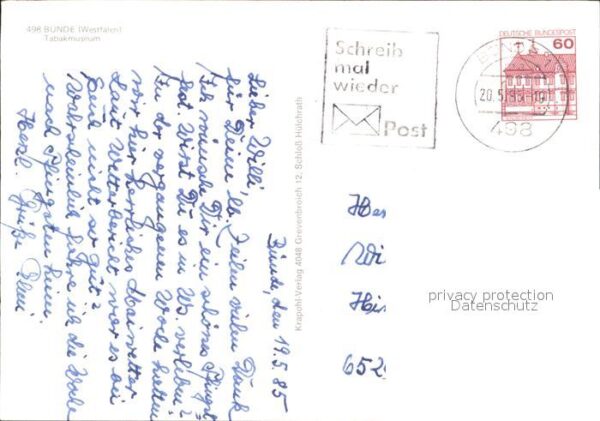 498 BÜNDE (Westfalen)
Tabakmuseum
Schreib
mal
wieder
Post
DEUTSCHE BUNDESPOST
60
BÜNDE
20.5.85
498
Krapohl-Verlag 4048 Grevenbroich 12, Schloß Hülchrath
Bünde, den 19.5.85
Lieber Willi,
für Deine lb. Zeilen vielen Dank
Ich wünsche Dir ein schönes Pfingst
fest. Wirst Du es in Ws. verleben?
In der vergangenen Woche hatten
wir hier herrliches Maiwetter
Laut Wetterbericht war es bei
Euch nicht so gut?
Wahrscheinlich fahre ich die Woche
nach Pfingsten heim.
Herzl. Grüße
Her
Wi
Hei
652
privacy protection
Datenschutz